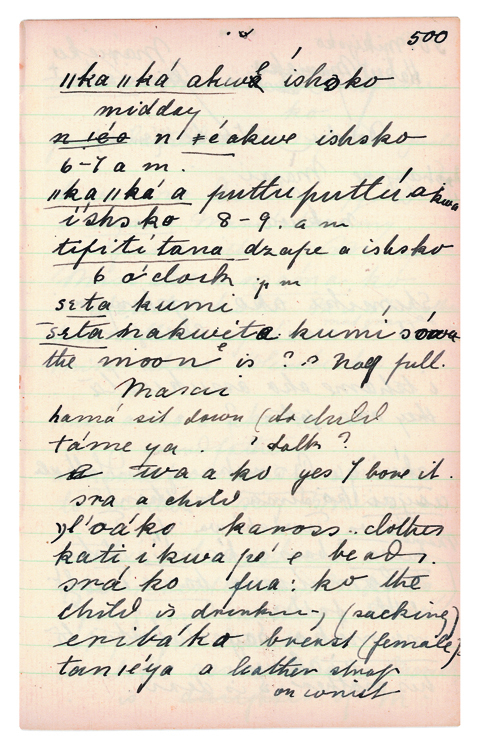 500
"ka "ká akwe íshoko
midday
n ιéo n ɂéakwe ishsko
6-7 a m.
"ka "ká a puttuputtú. aikwa
íshsko 8-9. a m
tifití tana dzape a ishsko
6 o'clock p m
seta kumi
seta nakweta kumí sówa
the moon is ? half full.
Masai
hamá sit down (to child
táme ya . ? talk ?
twa a ko yes I have it.
sra a child
"l'oáko kaross. clothes
kati ikwape' e beads.
srá ko fua: ko the
child is drinking (sucking)
eribáko breast (female)
tanιéya a leather strap
on wrist